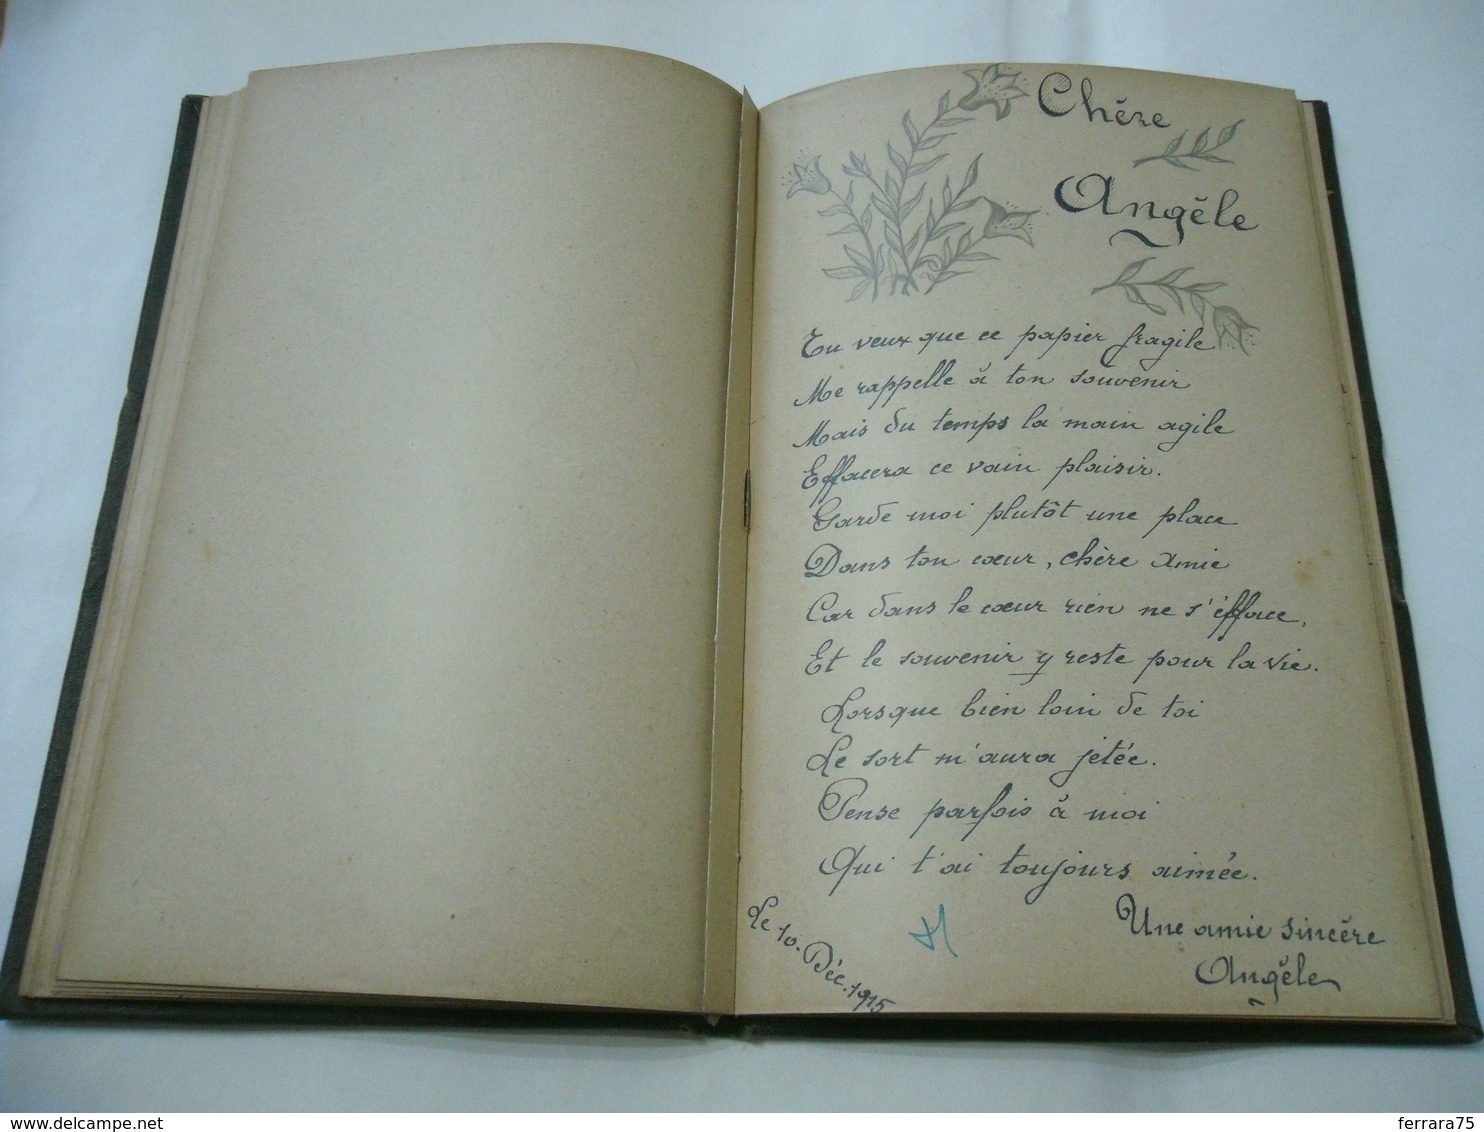 Chère
Angèle
Tu veux que ce papier fragile
Me rappelle à ton souvenir
Mais du temps la main agile
Effacera ce vain plaisir.
Garde moi plutôt une place
Dans ton cœur, chère amie
Car dans le cœur rien ne s'éfface,
Et le souvenir y reste pour la vie.
Lorsque bien loin de toi
Le sort m'aura jetée.
Pense parfois à moi
Qui t'ai toujours aimée.
Une amie sincère
Angèle
Le 10. Déc. 1915
ferrara75